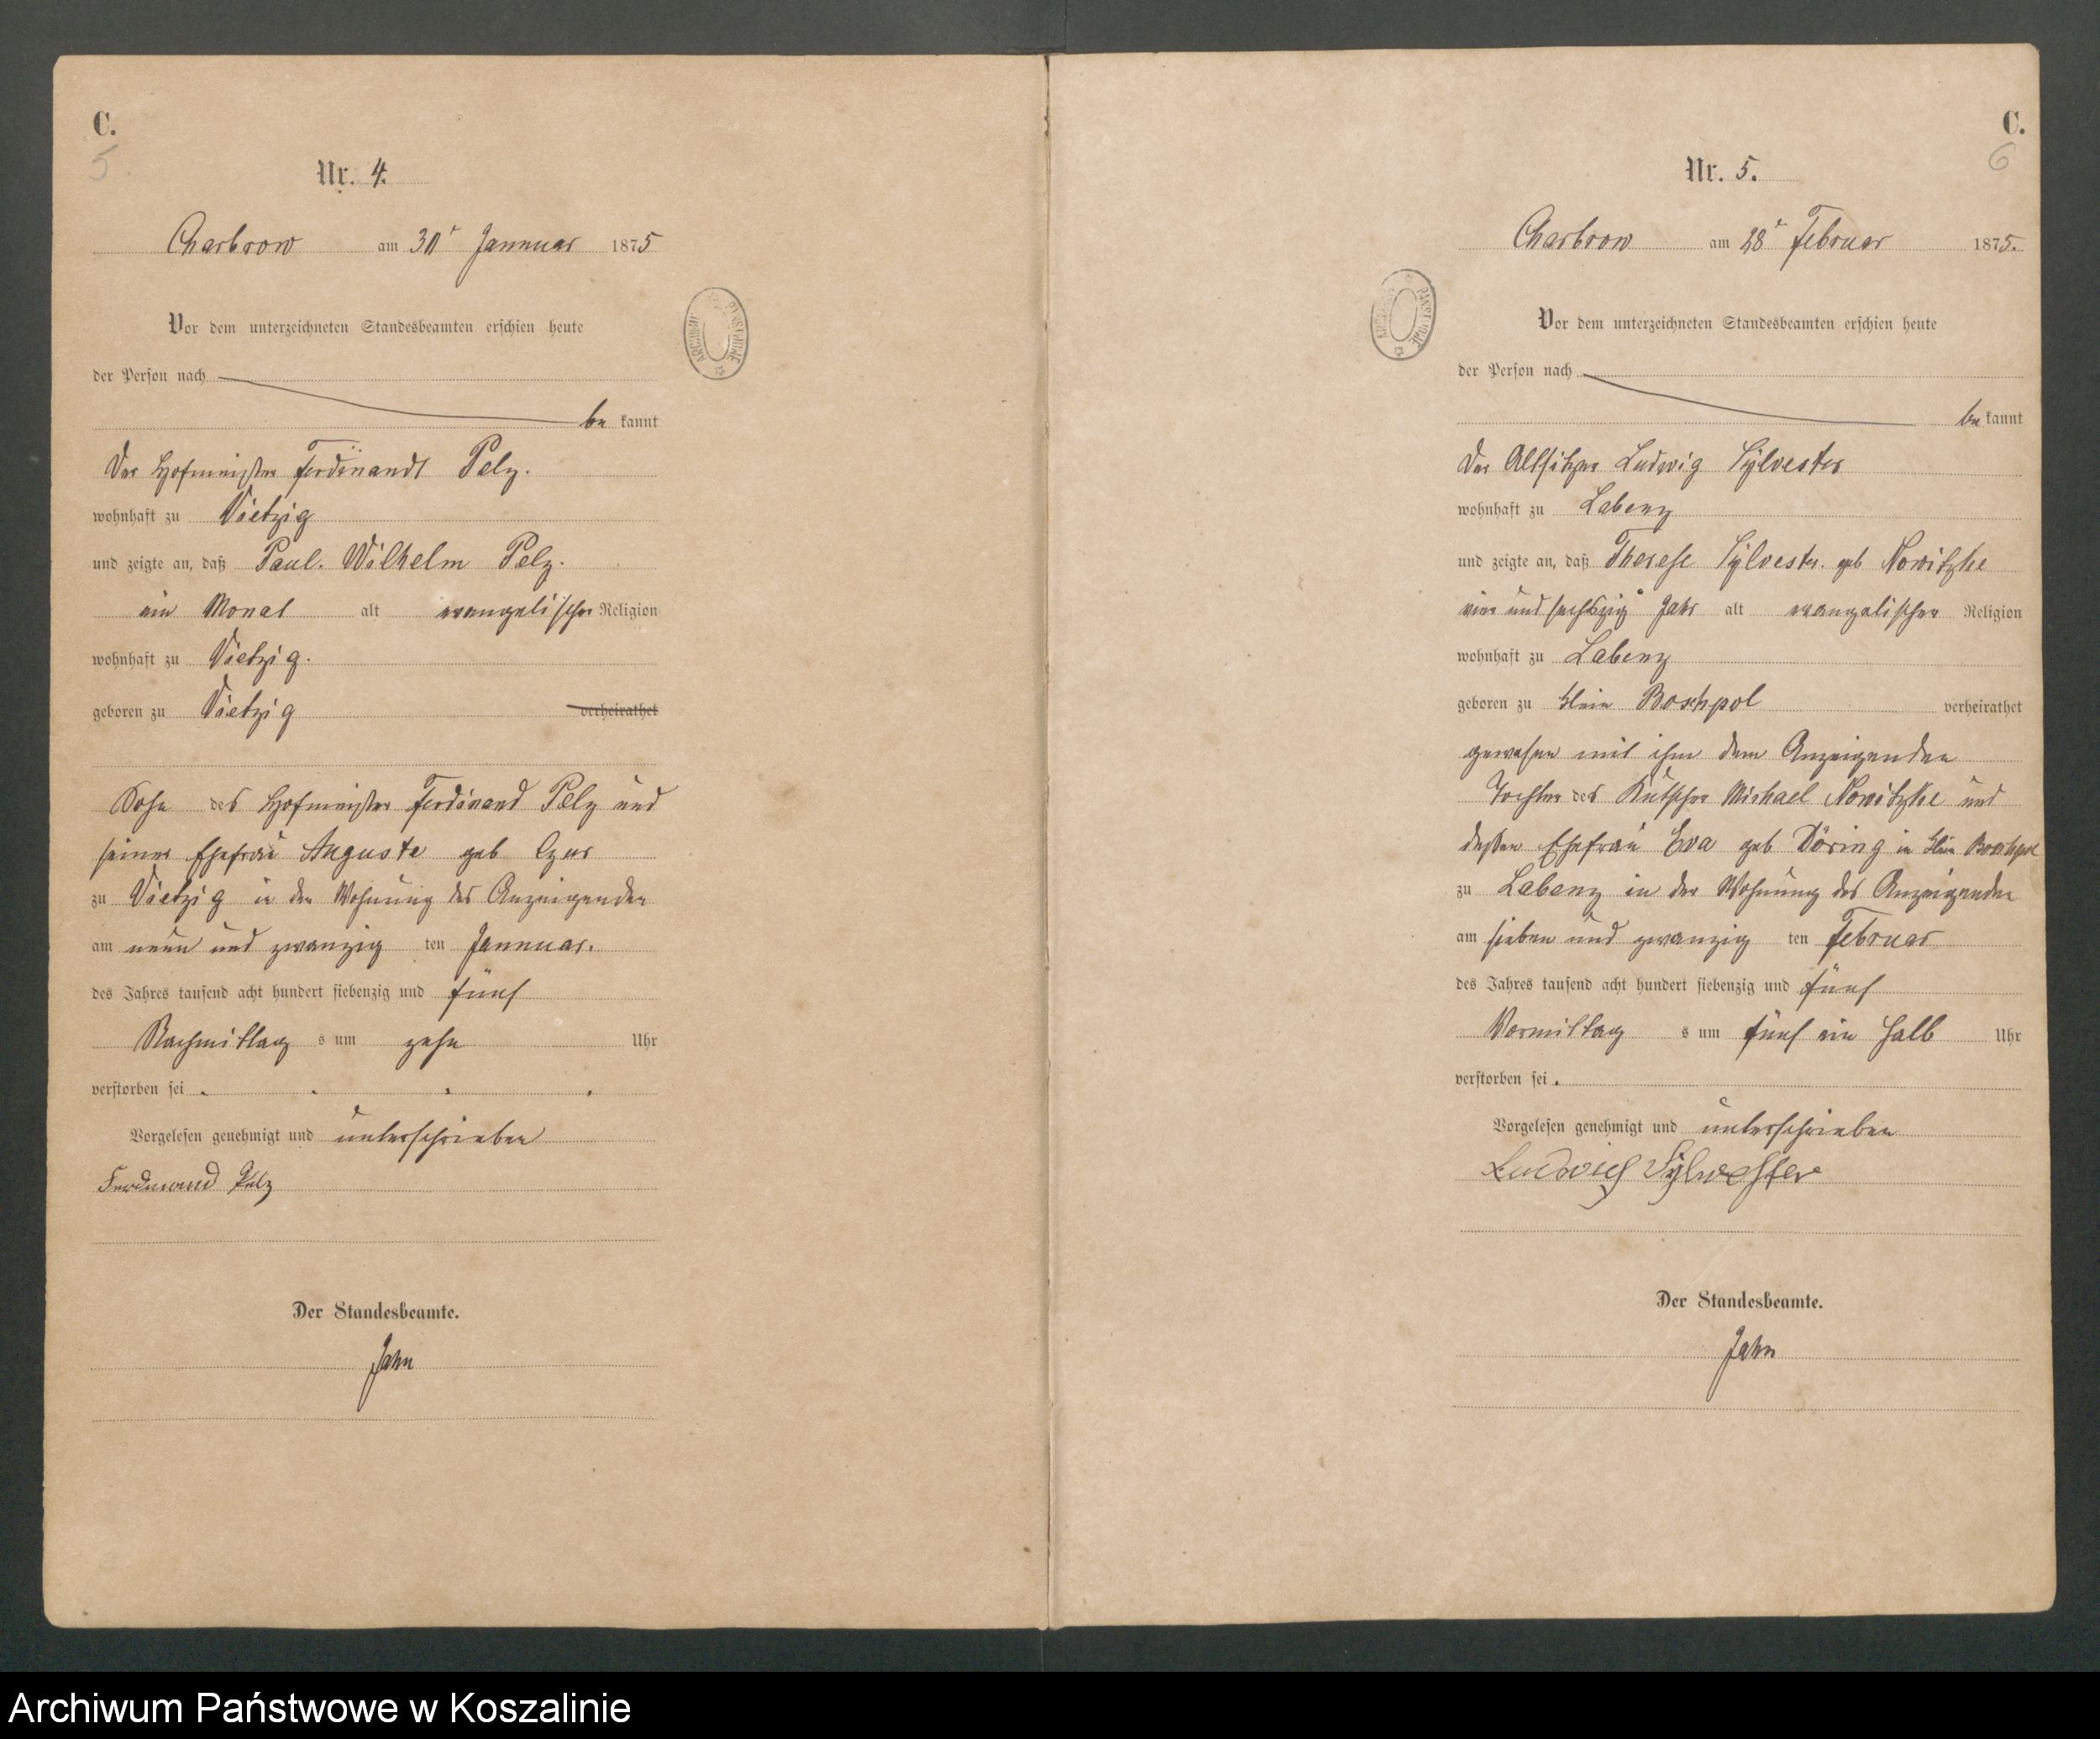 C.
5
Nr. 4.
Charbrow am 30t Jannuar 1875
Vor dem unterzeichneten Standesbeamten erschien heute
der Person nach
be kannt
Der Hofmeister Ferdinandt Pelz.
wohnhaft zu Vietzig
und zeigte an, daß Paul. Wilhelm Pelz.
ein Monat alt evangelischer Religion
wohnhaft zu Vietzig.
geboren zu Vietzig verheirathet
Sohn des Hofmeister Ferdinand Pelz und
seiner Ehefrau Auguste geb Czur
zu Vietzig in der Wohnung des Anzeigenden
am neun und zwanzig ten Jannuar.
des Jahres tausend acht hundert siebenzig und fünf
Nachmittag s um zehn Uhr
verstorben sei
Vorgelesen genehmigt und unterschrieben
Ferdinand Pelz
Der Standesbeamte.
Jahn
C.
6
Nr. 5.
Charbrow am 28t Februar 1875.
Vor dem unterzeichneten Standesbeamten erschien heute
der Person nach
be kannt
Der Altsitzer Ludwig Sylvester
wohnhaft zu Labenz
und zeigte an, daß Therese Sylvester. geb Nowitzke
vier und sechszig Jahr alt evangelischer Religion
wohnhaft zu Labenz
geboren zu Klein Boschpol verheirathet
gewesen mit ihm dem Anzeigenden
Tochter des Kutscher Michael Nowitzke und
deßen Ehefrau Eva geb Döring in Klein Boschpol
zu Labenz in der Wohnung des Anzeigenden
am sieben und zwanzig ten Februar
des Jahres tausend acht hundert siebenzig und fünf
Vormittag s um fünf ein halb Uhr
verstorben sei.
Vorgelesen genehmigt und unterschrieben
Ludwig Sylwester
Der Standesbeamte.
Jahn
Archiwum Państwowe w Koszalinie